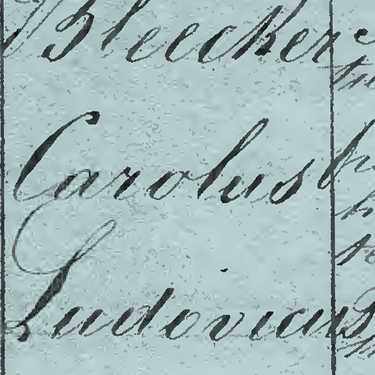 Bleecker
Carolus
Ludovicus